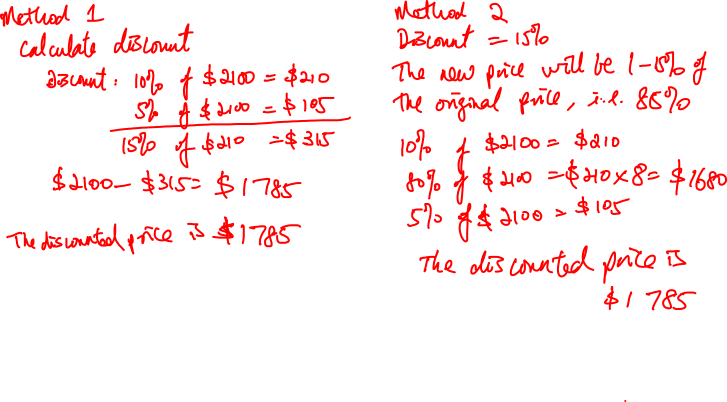 Method 1
Calculate discount
Discount: 10% of $2100 = $210
5% of $2100 = $105
15% of $210 = $315
$2100 - $315 = $1785
The discounted price is $1785
Method 2
Discount = 15%
The new price will be 1-15% of
the original price, i.e. 85%
10% of $2100 = $210
80% of $2100 = $210 x 8 = $1680
5% of $2100 = $105
The discounted price is
$1785